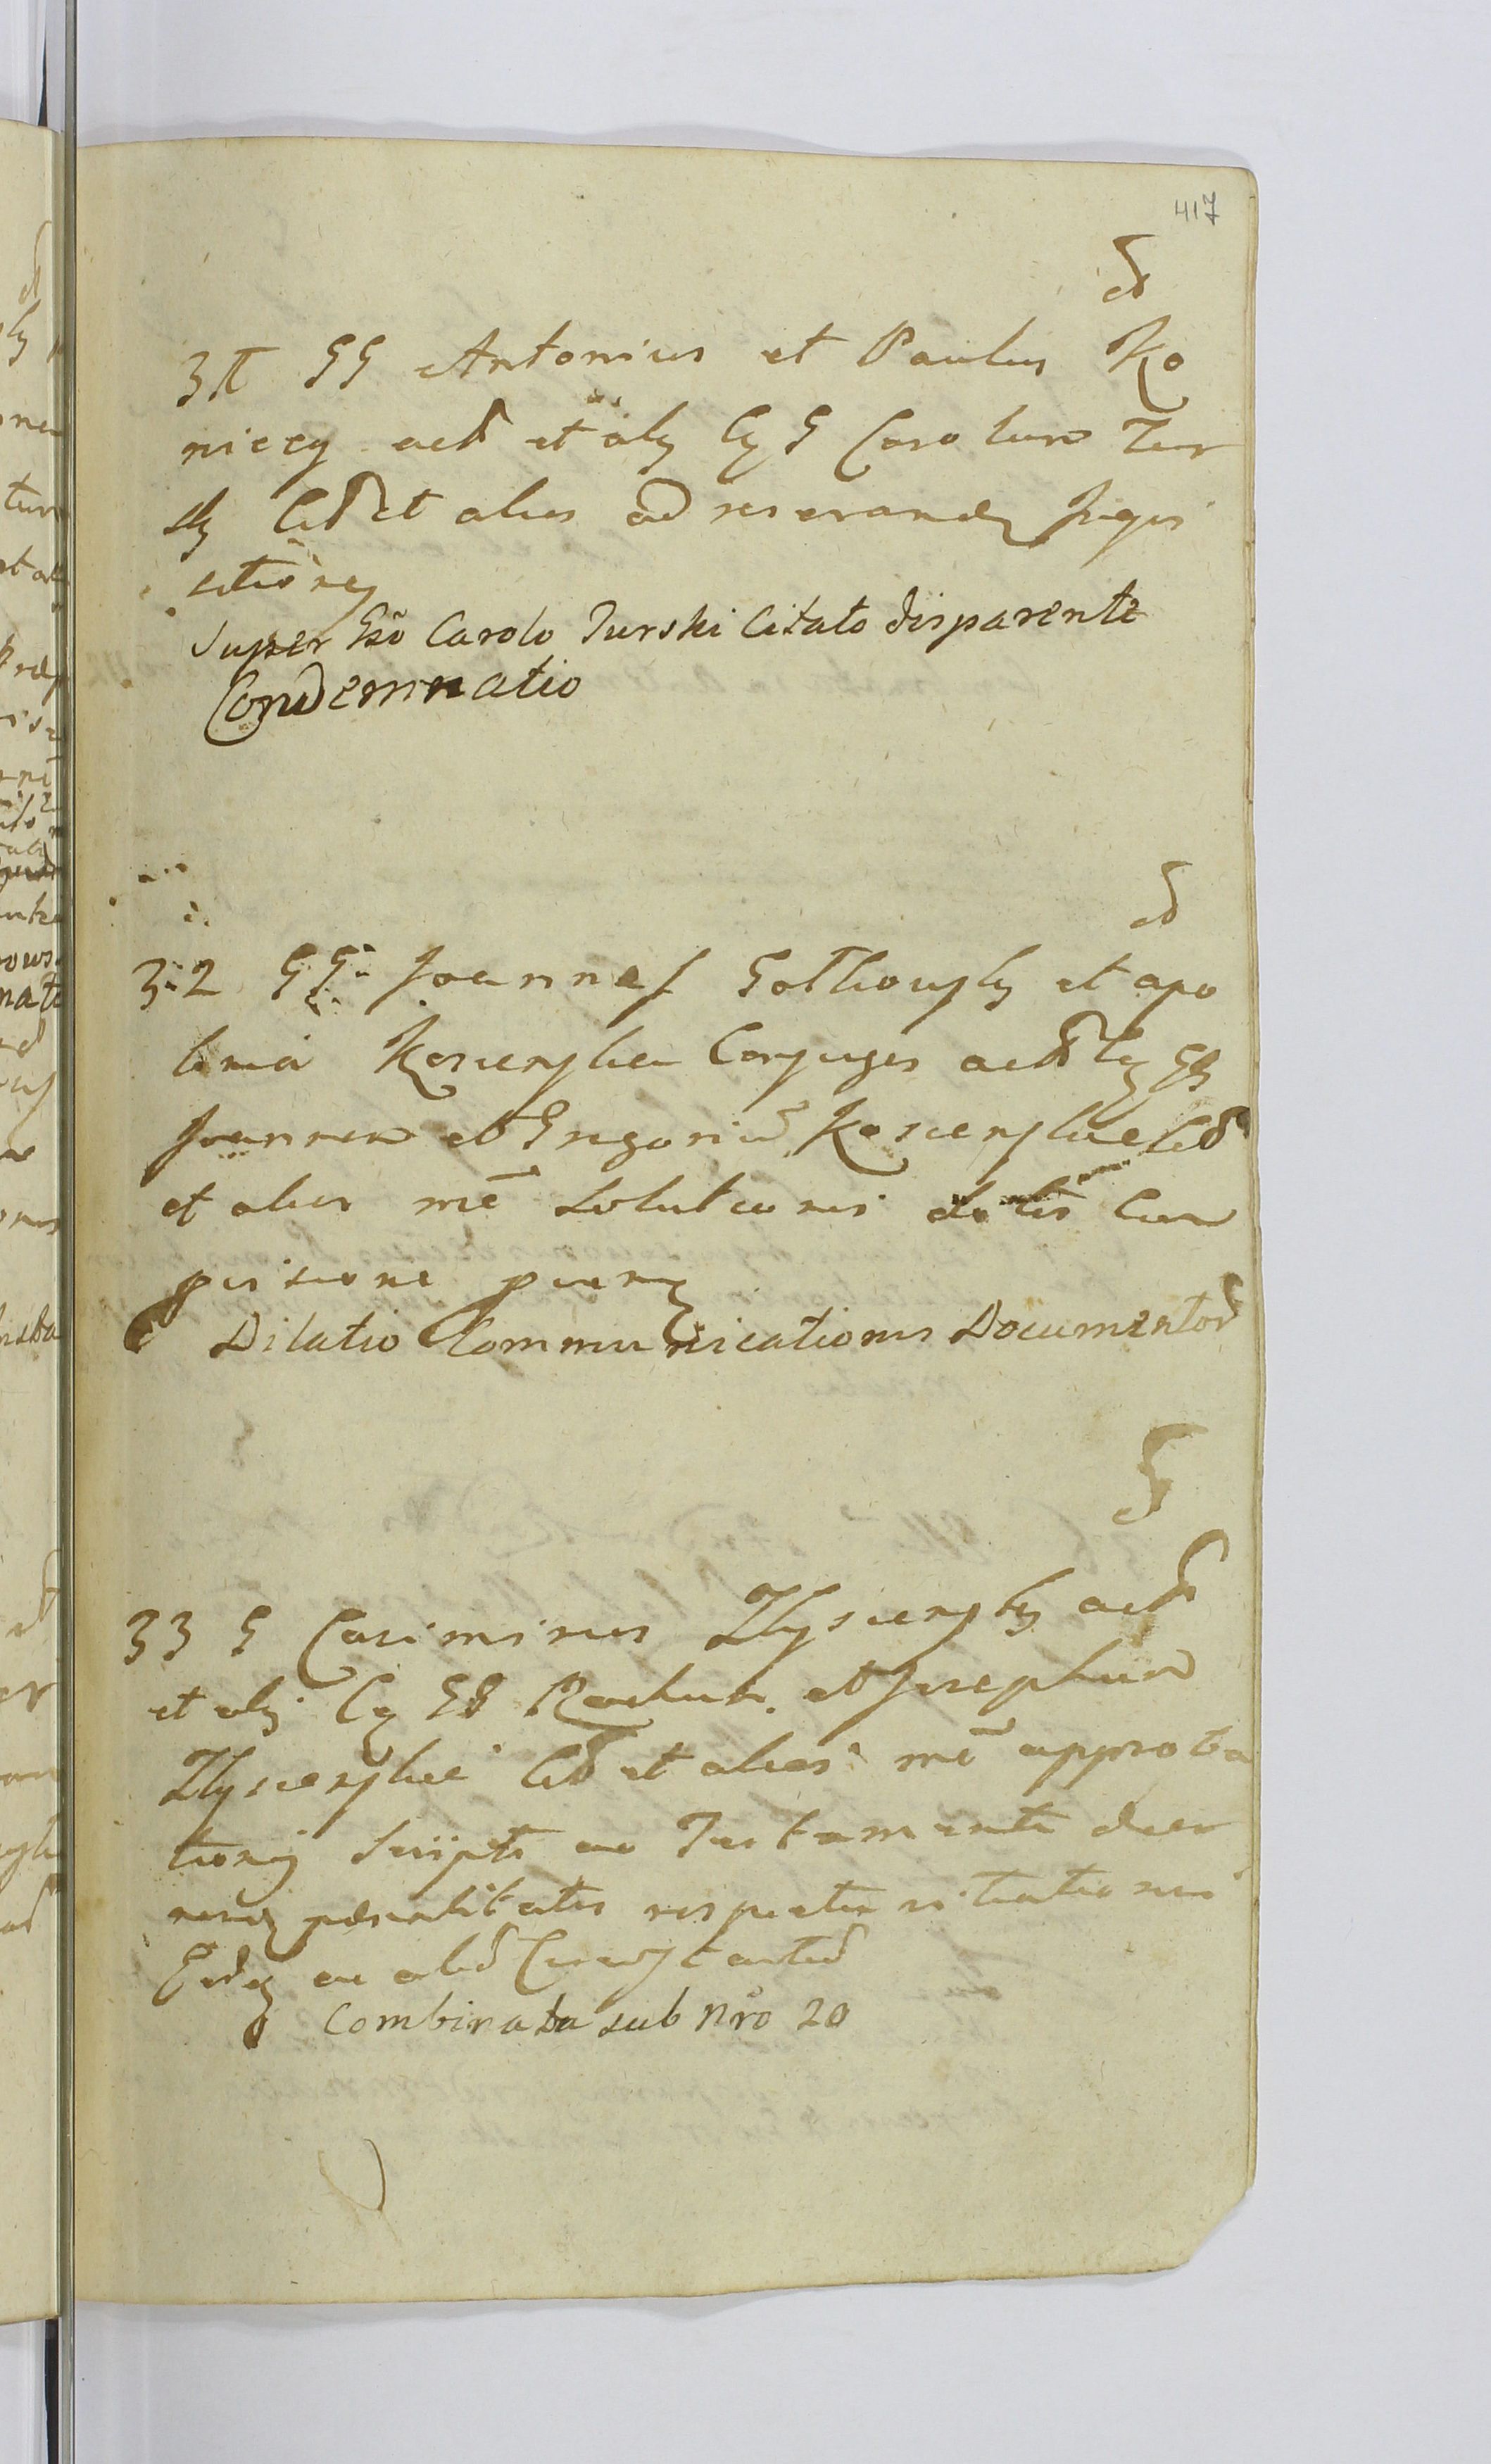 417
31 GG Antonius et Paulus Ko
niecy act et alij C G Carolum Tur
sky Cit et alios ad reserandam Inqui
sitionem
Super Gso Carolo Turski Citato disparente
Condemnatio
32 GG Joannes Gotkowsky et apo
linia Koscienska Conjuges act C GG
Joannem et Gregoriũ Koscienskie Cit
et alios mẽ Solutionis dotis Cum
pensione
Dilatio Communicationis Documentor
33 G Casimirus Ilyscensky act
et alij C GG Paulum et Josephum
Ilyscenskie Cit et alios mẽ approba
tionis Scripti ac Testamenti decer
nend paenalitatis respectu vitiationis
Eidem ac aliũ Circumstantiũ
Combinata sub Nro 20